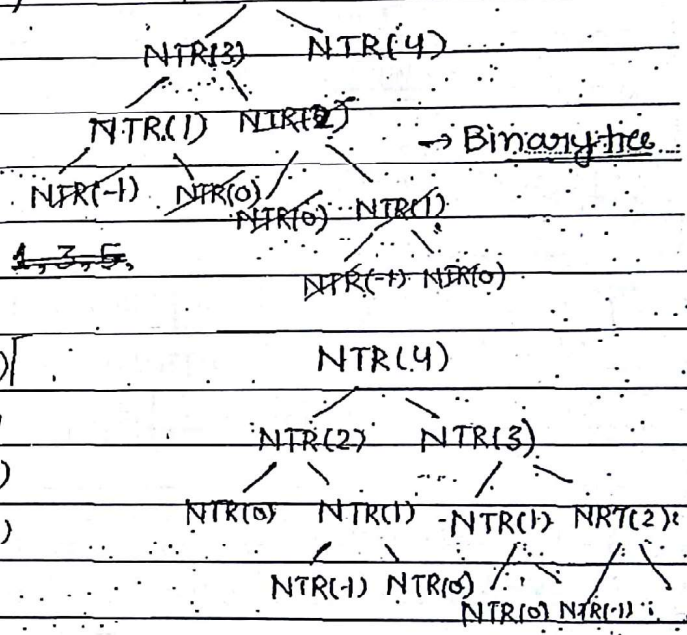 NTR(3) NTR(4)
NTR(1) NTR(2)
→ Binary tree
NTR(-1) NTR(0) NTR(0) NTR(1)
1, 3, 5,
NTR(-1) NTR(0)
NTR(4)
NTR(2) NTR(3)
NTR(0) NTR(1) NTR(1) NRT(2)
NTR(-1) NTR(0)
NTR(0) NTR(-1)